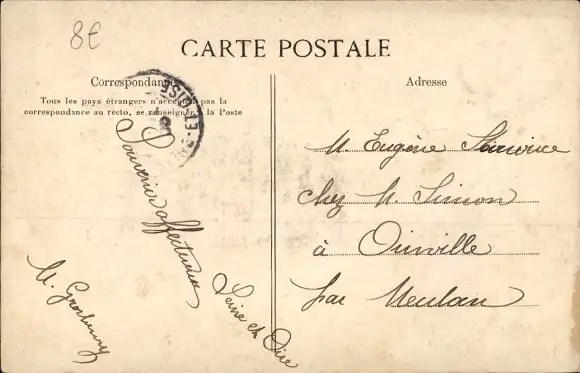 8€
CARTE POSTALE
Correspondance
Tous les pays étrangers n'acceptent pas la
correspondance au recto, se renseigner à la Poste
ET-OISE
Souvenir affectueux
M.
Seine et Oise
Adresse
M. Eugène
chez M. Simon
à Oinville
par Meulan